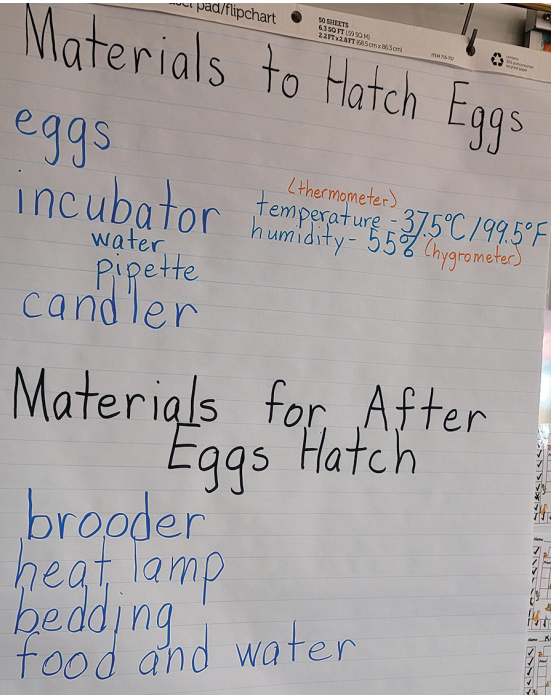 pad/flipchart
50 SHEETS
6.3 SQ FT (.59 SQ M)
2.2 FT x 2.8 FT (68.5 cm x 86.3 cm)
Materials to Hatch Eggs
eggs
incubator
(thermometer)
temperature - 37.5°C / 99.5°F
humidity - 55% (hygrometer)
water
pipette
candler
Materials for After
Eggs Hatch
brooder
heat lamp
bedding
food and water